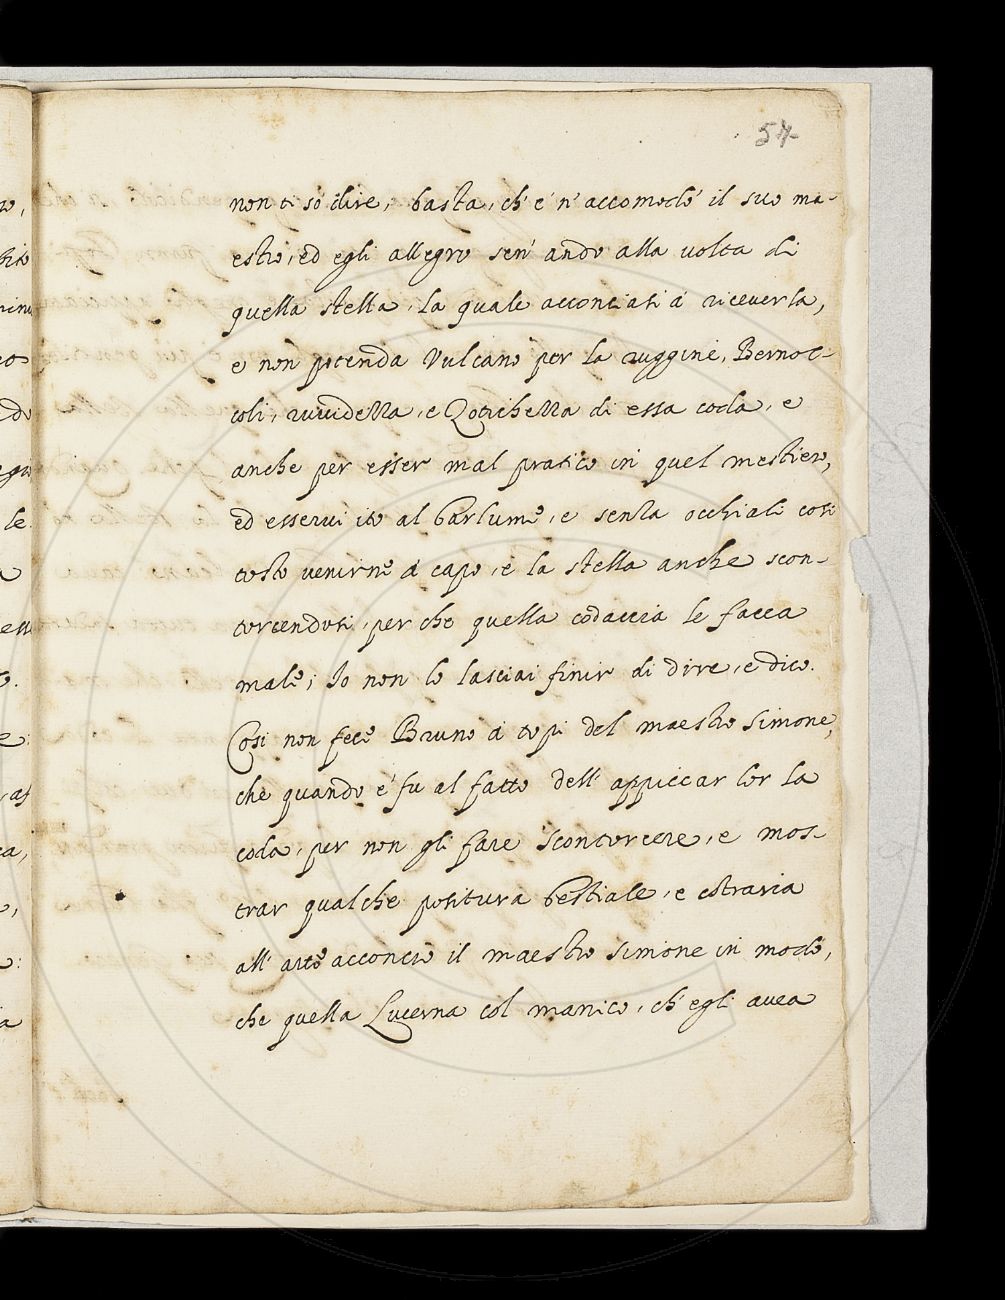 54
non ti sò dire, basta, ch'e' n'accomodò il suo ma-
estro, ed egli allegro sen' andò alla volta di
quella stella, la quale acconciati à riceverla,
e non potenda Vulcano per la ruggine, Bernoc-
coli, ruvidezza, e Zotichezza di essa coda, e
anche per esser mal pratico in quel mestiero,
ed esservi ito al barlume, e senza occhiali così
tosto venirne à capo, e la stella anche scon-
torcendosi, perche quella codaccia le facea
male; Io non lo lasciai finir di dire, e dico.
Così non fece Bruno à topi del maestro Simone,
che quando e' fu al fatto dell' appiccar lor la
coda, per non gli fare scontorcere, e mos-
trar qualche positura bestiale, e cõtraria
all' arte acconciò il maestro Simone in modo,
che quella Lucerna col manico, ch' egli avea